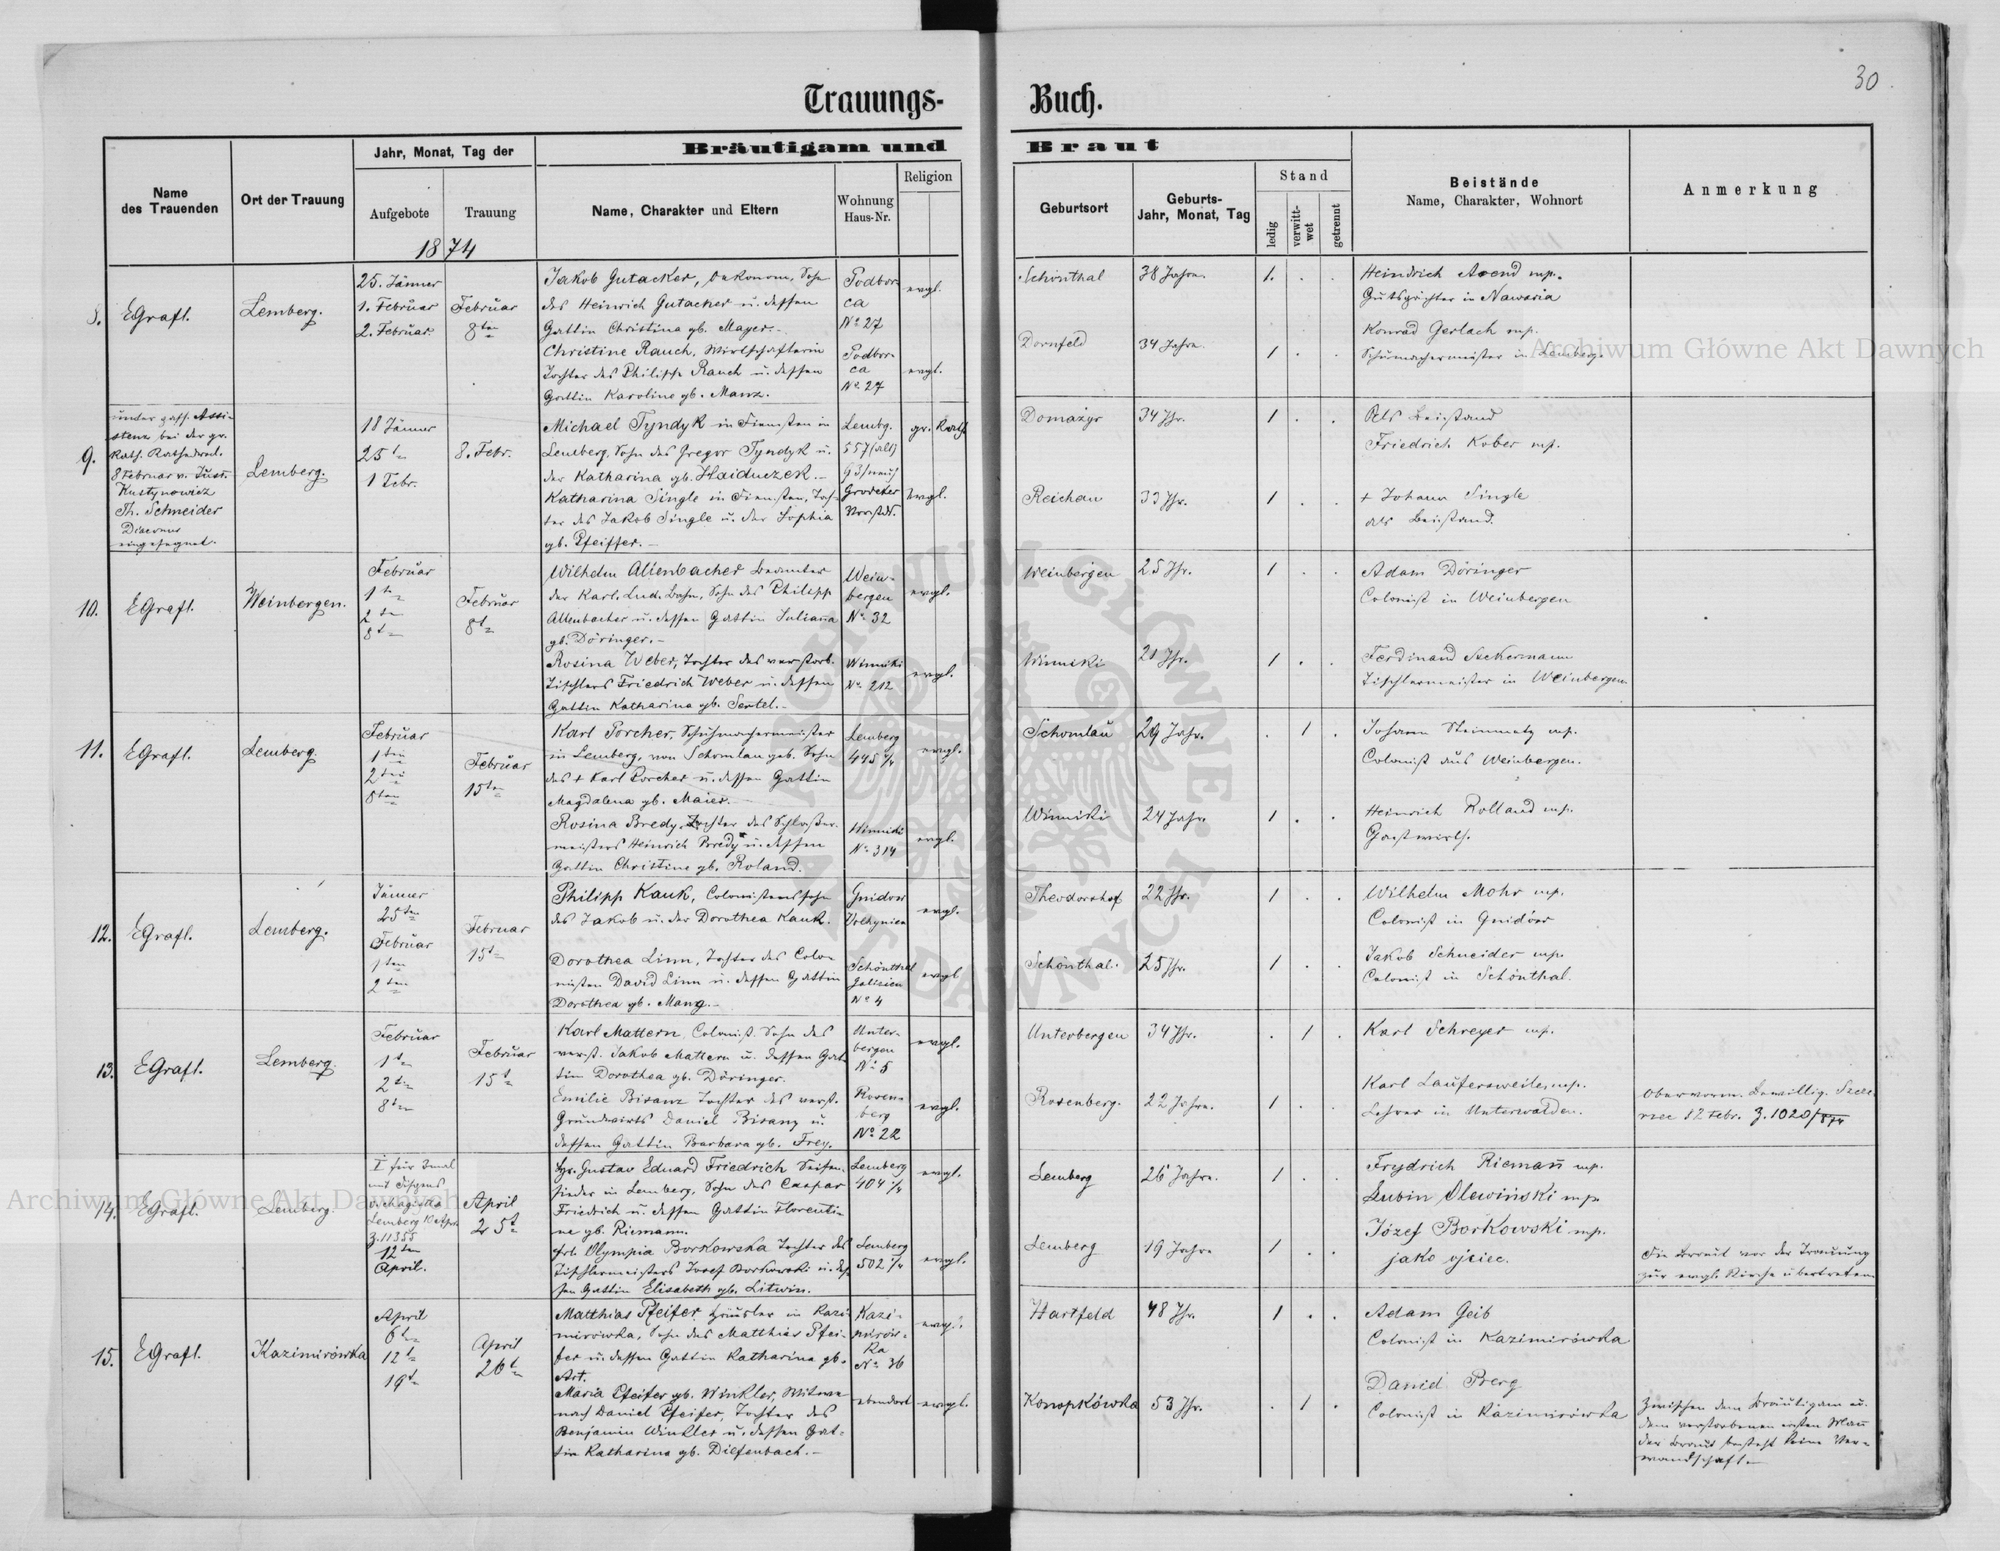 30
Trauungs- Buch.
Bräutigam und Braut
Name des Trauenden
Ort der Trauung
Jahr, Monat, Tag der
Aufgebote
Trauung
Name, Charakter und Eltern
Wohnung Haus-Nr.
Religion
Geburtsort
Geburts-Jahr, Monat, Tag
Stand
ledig
verwitt-wet
getrennt
Beistände
Name, Charakter, Wohnort
Anmerkung
1874
8.
EGrafl.
Lemberg.
25. Jänner
1. Februar
2. Februar.
Februar
8ten
Jakob Gutacker, Oekonom, Sohn
des Heinrich Gutacker u. dessen
Gattin Christina gb. Mayer.-
Podbor-
ca
No 27
evgl.
Schönthal
38 Jahre.
1 . .
Heindrich Arend mp.
Gutspächter in Nawaria
Christine Rauch, Wirtschafterin
Tochter des Philipp Rauch u. dessen
Gattin Karoline gb. Manz.
Podbor-
ca
No 27
evgl.
Dornfeld
34 Jahre.
1 . .
Konrad Gerlach mp.
Schumachermeister in Lemberg.
9.
under gass. Assi-
stenz bei der gr.
Kath. Kathedral.
8 Februar v. Just.
Kustynowicz
Th. Schneider
Diaconus
eingesegnet.
Lemberg.
18 Jänner
25te
1 Febr.
8. Febr.
Michael Tyndyk in Diensten in
Lemberg, Sohn des Gregor Tyndyk u.
der Katharina gb. Haiduczek.-
Lembg.
557 (alt)
93 (neu)
gr. Kath.
Domażyr
34 Jhr.
1 . .
Als Beistand
Friedrich Kober mp.
Katharina Single in Diensten, Toch-
ter des Jakob Single u. der Sophia
gb. Pfeiffer.-
Grodeker
Vorstdt.
evgl.
Reichau
33 Jhr.
1 . .
+ Johann Single
als Beistand.
10.
EGrafl.
Weinbergen.
Februar
1te
2te
8te
Februar
8te
Wilhelm Altenbacher Beamter
der Karl. Lud. Bahn, Sohn des Philipp
Altenbacher u. dessen Gattin Juliana
gb. Döringer.-
Wein-
bergen
No 32
evgl.
Weinbergen
25 Jhr.
1 . .
Adam Döringer
Colonist in Weinbergen
Rosina Weber, Tochter des verstorb.
Tischlers Friedrich Weber u. dessen
Gattin Katharina gb. Sertel.-
Winniki
No. 212
evgl.
Winniki
21 Jhr.
1 . .
Ferdinand Ackermann
Tischlermeister in Weinbergen
11.
EGrafl.
Lemberg.
Februar
1ten
2ten
8ten
Februar
15te
Karl Porcher, Schuhmachermeister
in Lemberg, von Schomlau geb. Sohn
des + Karl Porcher u. dessen Gattin
Magdalena gb. Maier.-
Lemberg
445 1/4
evgl.
Schomlau
29 Jahr.
. 1 .
Johann Steinmetz mp.
Colonist aus Weinbergen.
Rosina Bredy, Tochter des Schlosser-
meisters Heinrich Bredy u. dessen
Gattin Christine gb. Roland.
Winniki
No 314
evgl.
Winniki
24 Jahr.
1 . .
Heinrich Rolland mp.
Gastwirth.
12.
EGrafl.
Lemberg.
Jänner
25ten
Februar
1ten
2ten
Februar
15te
Philipp Kauk, Colonistenssohn
des Jakob u. der Dorothea Kauk.
Gnidow
Volhynien
evgl.
Theodorshof
22 Jhr.
1 . .
Wilhelm Mohr mp.
Colonist in Gnidów
Dorothea Linn, Tochter des Colo-
nisten David Linn u. dessen Gattin
Dorothea gb. Mang.-
Schönthal
Galizien
No 4
evgl
Schönthal.
25 Jhr.
1 . .
Jakob Schneider mp.
Colonist in Schönthal.
13.
EGrafl.
Lemberg.
Februar
1te
2te
8te
Februar
15te
Karl Mattern, Colonist. Sohn des
verst. Jakob Mattern u. dessen Gat-
tin Dorothea gb. Döringer.
Unter-
bergen
No 5
evgl.
Unterbergen
34 Jhr.
. 1 .
Karl Schreyer mp.
Emilie Bisanz Tochter des verst.
Grundwirts Daniel Bisanz u.
dessen Gattin Barbara gb. Frey.
Rosen-
berg
No 22
evgl.
Rosenberg.
22 Jahre.
1 . .
Karl Laufersweiler mp.
Lehrer in Unterwalden.
Obervorm. Bewillig. Szcze-
rzec 12 Febr. Z. 1020/874
14.
EGrafl.
Lemberg.
I für 3mal
mit Dispens
v. Magistr.
Lemberg 10 Apr.
Z. 11355
12ten
April.
April
25t
Hr. Gustav Eduard Friedrich Seifen-
sieder in Lemberg, Sohn des Caspar
Friedrich u. dessen Gattin Florenti-
na gb. Riemann.
Lemberg
404 1/4
evgl.
Lemberg
26 Jahre.
1 . .
Frydrich Riemañ mp.
Lubin Olewiński mp.
Frl. Olympia Borkowska Tochter des
Tischlermeisters Josef Borkowski u. des-
sen Gattin Elisabeth gb. Litwin.
Lemberg
502 1/4
evgl.
Lemberg
19 Jahre
1 . .
Józef Borkowski mp.
jako ojciec.
Die Braut vor der Trauung
zur evgl. Kirche übertreten
15.
EGrafl.
Kazimirówka
April
6te
12te
19te
April
26te
Matthias Pfeifer, Häusler in Kazi-
mirówka, Sohn des Matthias Pfei-
fer u. dessen Gattin Katharina gb.
Art.
Kazi-
mirów-
ka
No. 36
evgl.
Hartfeld
48 Jhr.
1 . .
Adam Geib
Colonist in Kazimirówka
Maria Pfeifer gb. Winkler, Witwe
nach Daniel Pfeifer, Tochter des
Benjamin Winkler u. dessen Gat-
tin Katharina gb. Diefenbach.-
ebendort
evgl.
Konopkówka
53 Jhr.
. 1 .
Daniel Berg
Colonist in Kazimirówka
Zwischen dem Bräutigam u.
dem verstorbenen ersten Mann
der Braut besteht keine Ver-
wandschaft.-
Archiwum Główne Akt Dawnych
Archiwum Główne Akt Dawnych
ARCHIWUM GŁÓWNE AKT DAWNYCH